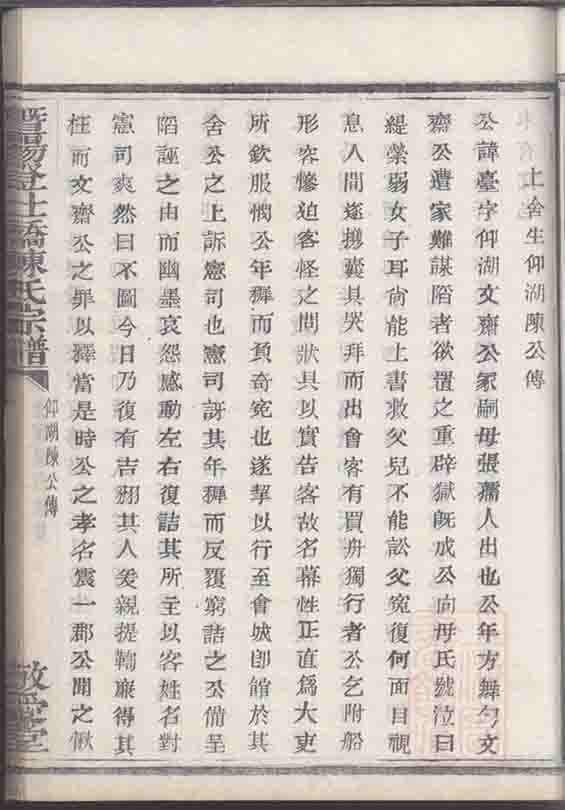 上舍生仰湖陳公傳
公諱臺字仰湖文齋公冢嗣母張孺人出也公年方舞勺文
齋公遭家難謀陷者欲置之重辟獄旣成公向母氏號泣曰
緹縈弱女子耳尙能上書救父兒不能訟父寃復何面目視
息人間遂摒囊具哭拜而出會客有買舟獨行者公乞附船
形容慘迫客怪之問狀具以實告客故名幕性正直爲大吏
所欽服憫公年穉而負奇寃也遂挈以行至會城卽館於其
舍公之上訴憲司也憲司訝其年穉而反覆窮詰之公備呈
陷誣之由而幽墨哀怨感動左右復詰其所主以客姓名對
憲司爽然曰不圖今日乃復有吉翂其人爰親提鞫廉得其
枉而文齋公之罪以釋當是時公之孝名震一郡公聞之愀
暨陽登仕橋陳氏宗譜
仰湖陳公傳
敬愛堂